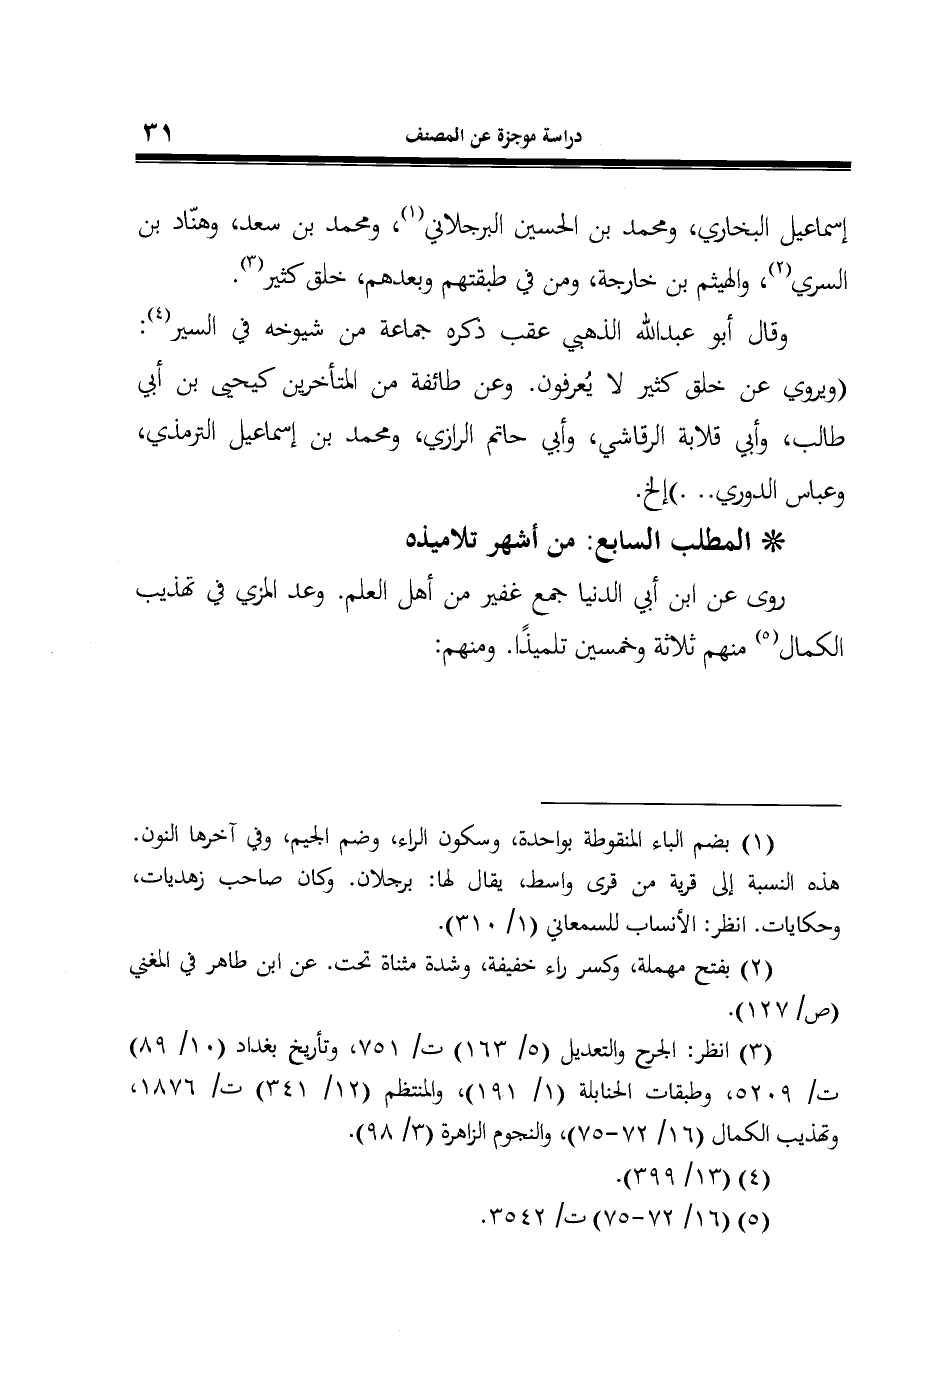 دراسة موجزة عن المصنف ٣١
إسماعيل البخاري، ومحمد بن الحسين البرجلاني(١)، ومحمد بن سعد، وهنّاد بن
السري(٢)، والهيثم بن خارجة، ومن في طبقتهم وبعدهم، خلق كثير(٣).
وقال أبو عبدالله الذهبي عقب ذكره جماعة من شيوخه في السير(٤):
(ويروي عن خلق كثير لا يُعرفون. وعن طائفة من المتأخرين كيحيى بن أبي
طالب، وأبي قلابة الرقاشي، وأبي حاتم الرازي، ومحمد بن إسماعيل الترمذي،
وعباس الدوري.. .)إلخ.
* المطلب السابع: من أشهر تلاميذه
روى عن ابن أبي الدنيا جمع غفير من أهل العلم. وعد المزي في تهذيب
الكمال(٥) منهم ثلاثة وخمسين تلميذًا. ومنهم:
(١) بضم الباء المنقوطة بواحدة، وسكون الراء، وضم الجيم، وفي آخرها النون.
هذه النسبة إلى قرية من قرى واسط، يقال لها: برجلان. وكان صاحب زهديات،
وحكايات. انظر: الأنساب للسمعاني (١/ ٣١٠).
(٢) بفتح مهملة، وكسر راء خفيفة، وشدة مثناة تحت. عن ابن طاهر في المغني
(ص/ ١٢٧).
(٣) انظر: الجرح والتعديل (٥/ ١٦٣) ت/ ٧٥١، وتأريخ بغداد (١٠/ ٨٩)
ت/ ٥٢٠٩، وطبقات الحنابلة (١/ ١٩١)، والمنتظم (١٢/ ٣٤١) ت/ ١٨٧٦،
وتهذيب الكمال (١٦/ ٧٢-٧٥)، والنجوم الزاهرة (٣/ ٩٨).
(٤) (١٣/ ٣٩٩).
(٥) (١٦/ ٧٢-٧٥) ت/ ٣٥٤٢.